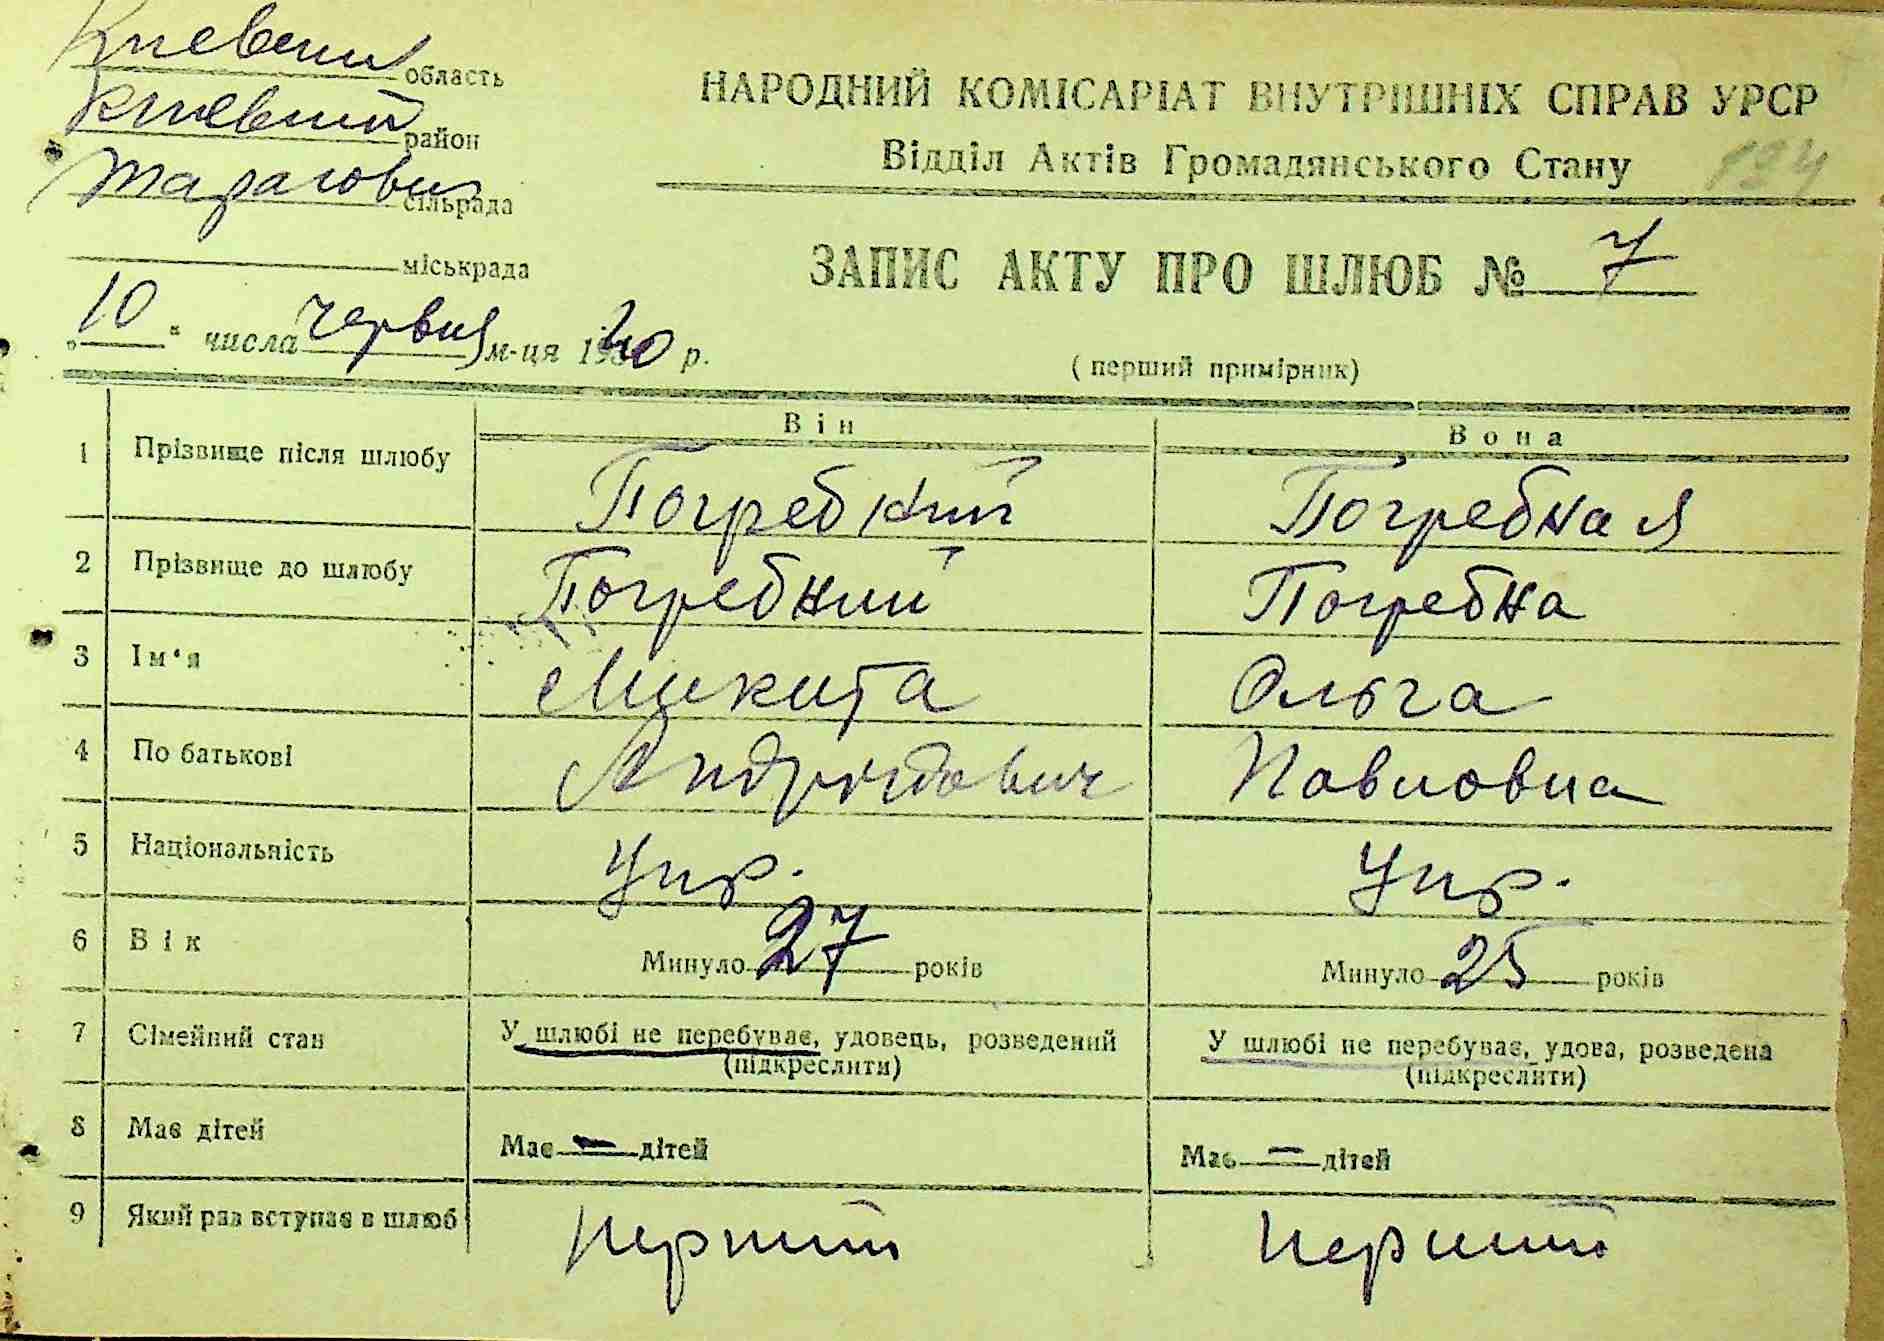 Киевский область
Киевский район
сільрада
міськрада
НАРОДНИЙ КОМІСАРІАТ ВНУТРІШНІХ СПРАВ УРСР
Відділ Актів Громадянського Стану 194
ЗАПИС АКТУ ПРО ШЛЮБ № 7
„10“ числа червня м-ця 1940 р.
(перший примірник)
Він Вона
1 Прізвище після шлюбу Погребний Погребная
2 Прізвище до шлюбу Погребний Погребна
3 Ім‘я Микита Ольга
4 По батькові Павловна
5 Національність Укр. Укр.
6 Вік Минуло 27 років Минуло 25 років
7 Сімейний стан У шлюбі не перебуває, удовець, розведений У шлюбі не перебуває, удова, розведена
(підкреслити) (підкреслити)
8 Має дітей Має — дітей Має — дітей
9 Який раз вступає в шлюб перший перший